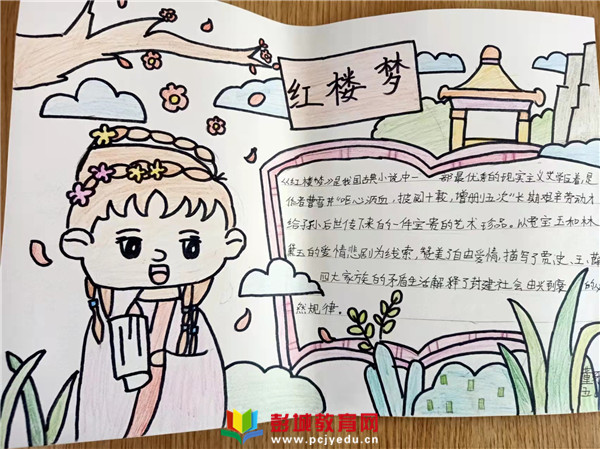 红楼梦
《红楼梦》是我国古典小说中一部最优秀的现实主义文学巨著,是
作者曹雪芹"呕心沥血,披阅十载,增删五次"长期艰辛劳动才
给子孙后世传下来的一件宝贵的艺术珍品。从贾宝玉和林
黛玉的爱情悲剧为线索,赞美了自由爱情,描写了贾、史、王、薛
四大家族的矛盾生活解释了封建社会由兴到衰的必
然规律。
彭城教育网
www.pcjyedu.cn